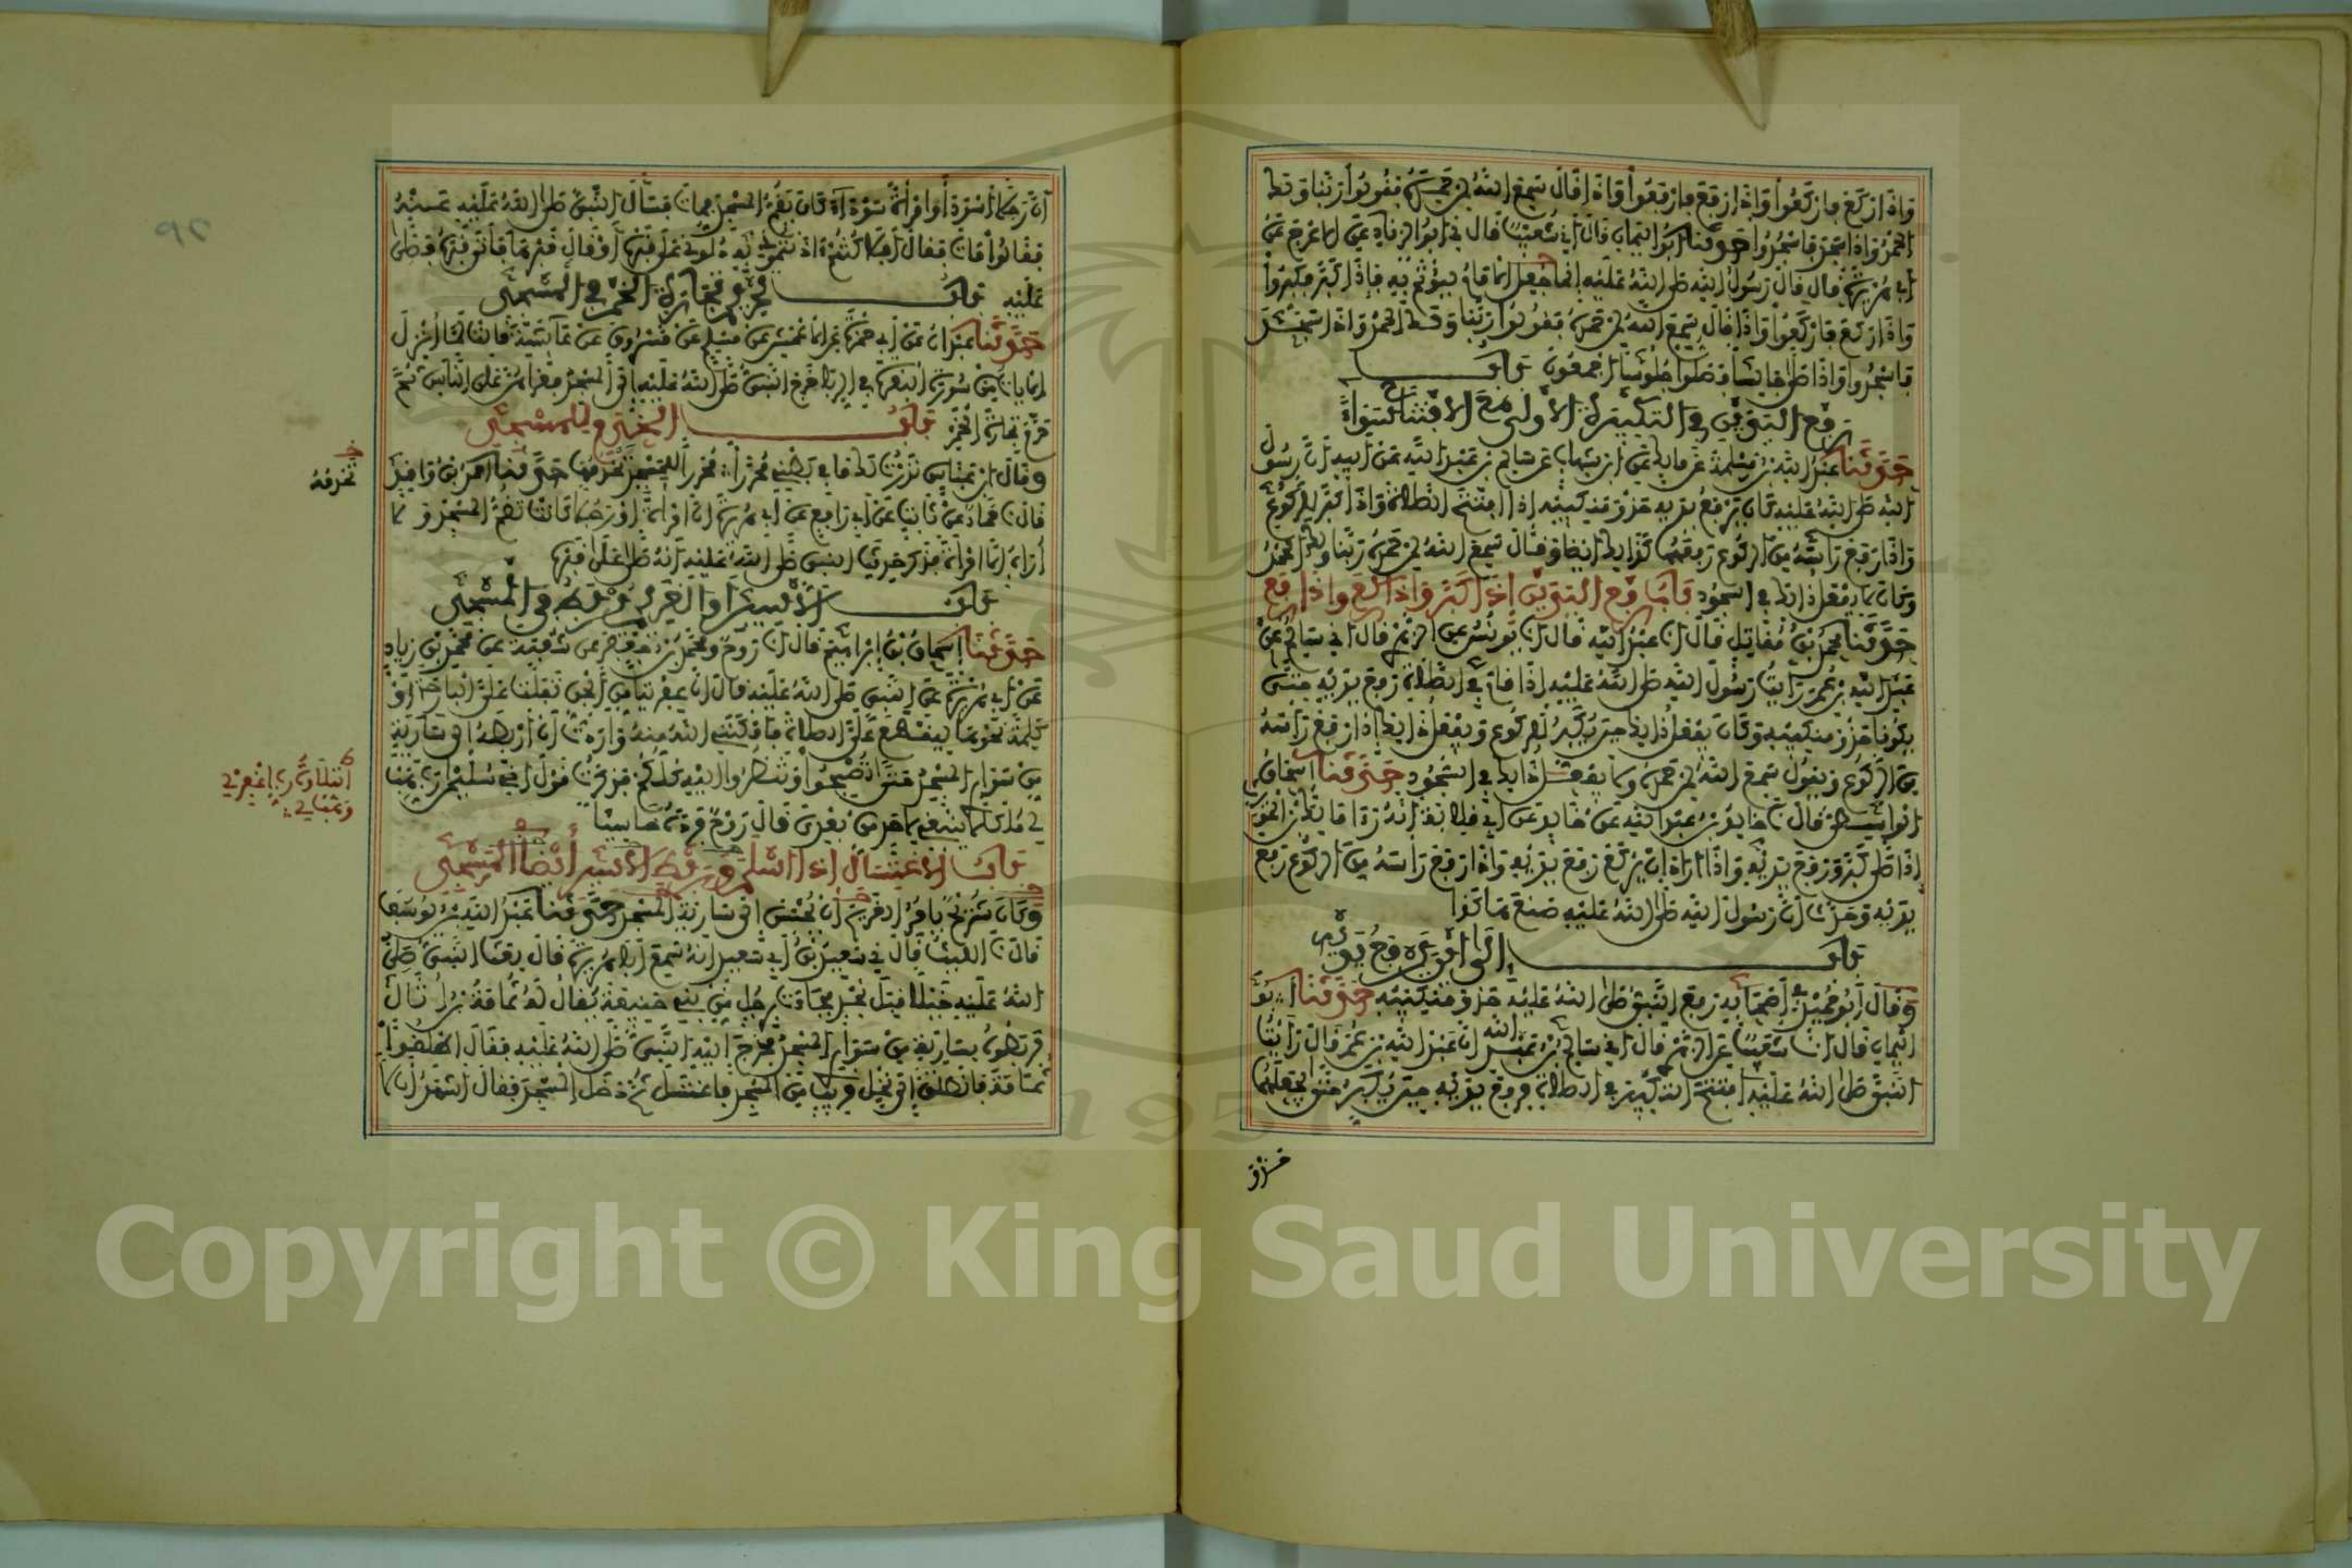 واذا ركع فاركعوا واذا رفع فارفعوا واذا قال سمع الله لمن حمده فقولوا ربنا ولك
الحمد واذا سجد فاسجدوا حدثنا ابو اليمان قال اني شعيب قال ني ابو الزناد عن الاعرج عن
ابي هريرة قال قال رسول الله صلى الله عليه انما جعل الامام ليؤتم به فاذا كبر فكبروا
واذا ركع فاركعوا واذا قال سمع الله لمن حمده فقولوا ربنا ولك الحمد واذا سجد
فاسجدوا واذا صلى جالسا فصلوا جلوسا اجمعون باب
رفع اليدين في التكبيرة الاولى مع الافتتاح سواء
حدثنا عبد الله بن مسلمة عن مالك عن ابن شهاب عن سالم بن عبد الله عن ابيه ان رسول
الله صلى الله عليه كان يرفع يديه حذو منكبيه اذا افتتح الصلاة واذا كبر للركوع
واذا رفع راسه من الركوع رفعهما كذلك ايضا وقال سمع الله لمن حمده ربنا ولك الحمد
وكان لا يفعل ذلك في السجود باب رفع اليدين اذا كبر واذا ركع واذا رفع
حدثنا محمد بن مقاتل قال انا عبد الله قال انا يونس عن الزهري قال اني سالم عن
عبد الله بن عمر رايت رسول الله صلى الله عليه اذا قام في الصلاة رفع يديه حتى
يكونا حذو منكبيه وكان يفعل ذلك حين يكبر للركوع ويفعل ذلك اذا رفع راسه
من الركوع ويقول سمع الله لمن حمده ولا يفعل ذلك في السجود حدثنا اسحاق
الواسطي قال نا خالد بن عبد الله عن خالد عن ابي قلابة انه راى مالك بن الحويرث
اذا صلى كبر ورفع يديه واذا اراد ان يركع رفع يديه واذا رفع راسه من الركوع رفع
يديه وحدث ان رسول الله صلى الله عليه صنع هاكذا
باب الى اين يرفع يديه
وقال ابو حميد في اصحابه رفع النبي صلى الله عليه حذو منكبيه حدثنا ابو
اليمان قال انا شعيب عن الزهري قال اني سالم بن عبد الله ان عبد الله بن عمر قال رايت
النبي صلى الله عليه افتتح التكبير في الصلاة فرفع يديه حين يكبر حتى يجعلهما
حذو
ان رجلا اسود او امراة سوداء كان يقم المسجد فمات فسال النبي صلى الله عليه عنه
فقالوا مات فقال افلا كنتم اذنتموني به دلوني على قبره او قال قبرها فاتى قبره فصلى
عليه باب تحريم تجارة الخمر في المسجد
حدثنا عبدان عن ابي حمزة عن الاعمش عن مسلم عن مسروق عن عائشة قالت لما انزل
الايات من سورة البقرة في الربا خرج النبي صلى الله عليه الى المسجد فقراهن على الناس ثم
حرم تجارة الخمر باب الخدم للمسجد
وقال ابن عباس نذرت لك ما في بطني محررا محررا للمسجد يخدمها حدثنا احمد بن واقد
قال نا حماد عن ثابت عن ابي رافع عن ابي هريرة ان امراة او رجلا كانت تقم المسجد ولا
اراه الا امراة فذكر حديث النبي صلى الله عليه انه صلى على قبرها
باب الاسير او الغريم يربط في المسجد
حدثنا اسحاق بن ابراهيم قال انا روح ومحمد بن جعفر عن شعبة عن محمد بن زياد
عن ابي هريرة عن النبي صلى الله عليه قال ان عفريتا من الجن تفلت علي البارحة او
كلمة نحوها ليقطع علي الصلاة فامكنني الله منه واردت ان اربطه الى سارية
من سواري المسجد حتى تصبحوا وتنظروا اليه كلكم فذكرت قول اخي سليمان رب هب
لي ملكا لا ينبغي لاحد من بعدي قال روح فرده خاسئا
باب الاغتسال اذا اسلم وربط الاسير ايضا في المسجد
وكان شريح يامر الغريم ان يحبس الى سارية المسجد حدثنا عبد الله بن يوسف
قال نا الليث قال ني سعيد بن ابي سعيد انه سمع ابا هريرة قال بعث النبي صلى
الله عليه خيلا قبل نجد فجاءت برجل من بني حنيفة يقال له ثمامة بن اثال
فربطوه بسارية من سواري المسجد فخرج اليه النبي صلى الله عليه فقال اطلقوا
ثمامة فانطلق الى نخل قريب من المسجد فاغتسل ثم دخل المسجد فقال اشهد ان لا
خ
تخدمه
Copyright © King Saud University
1957